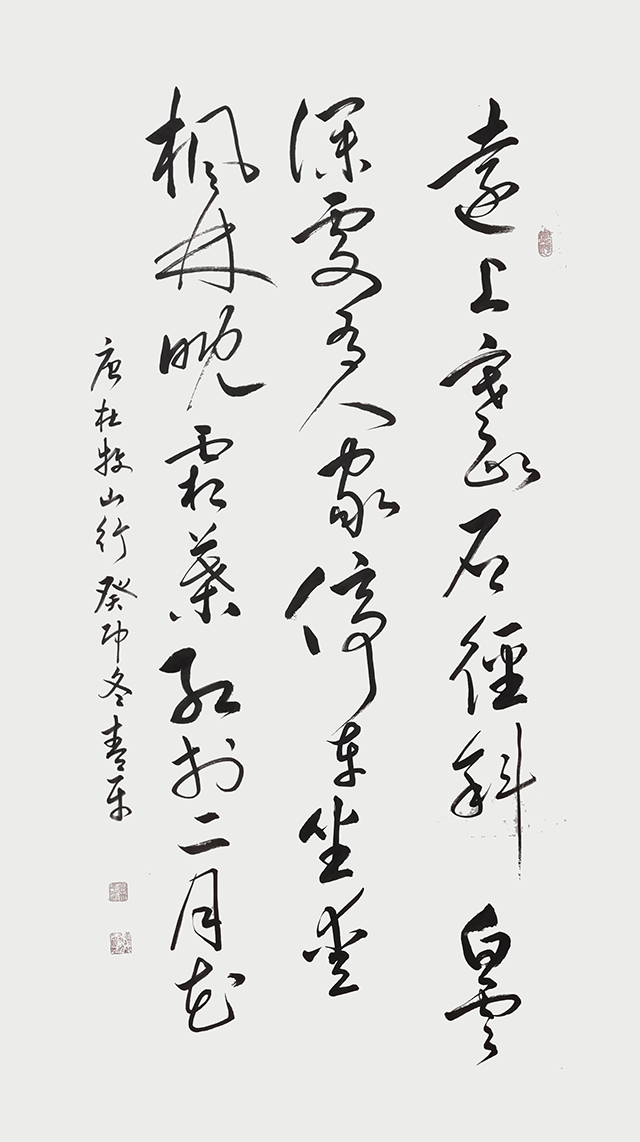 遠上寒山石徑斜白雲
深處有人家停車坐愛
楓林晚霜葉紅於二月花
唐杜牧山行癸卯冬